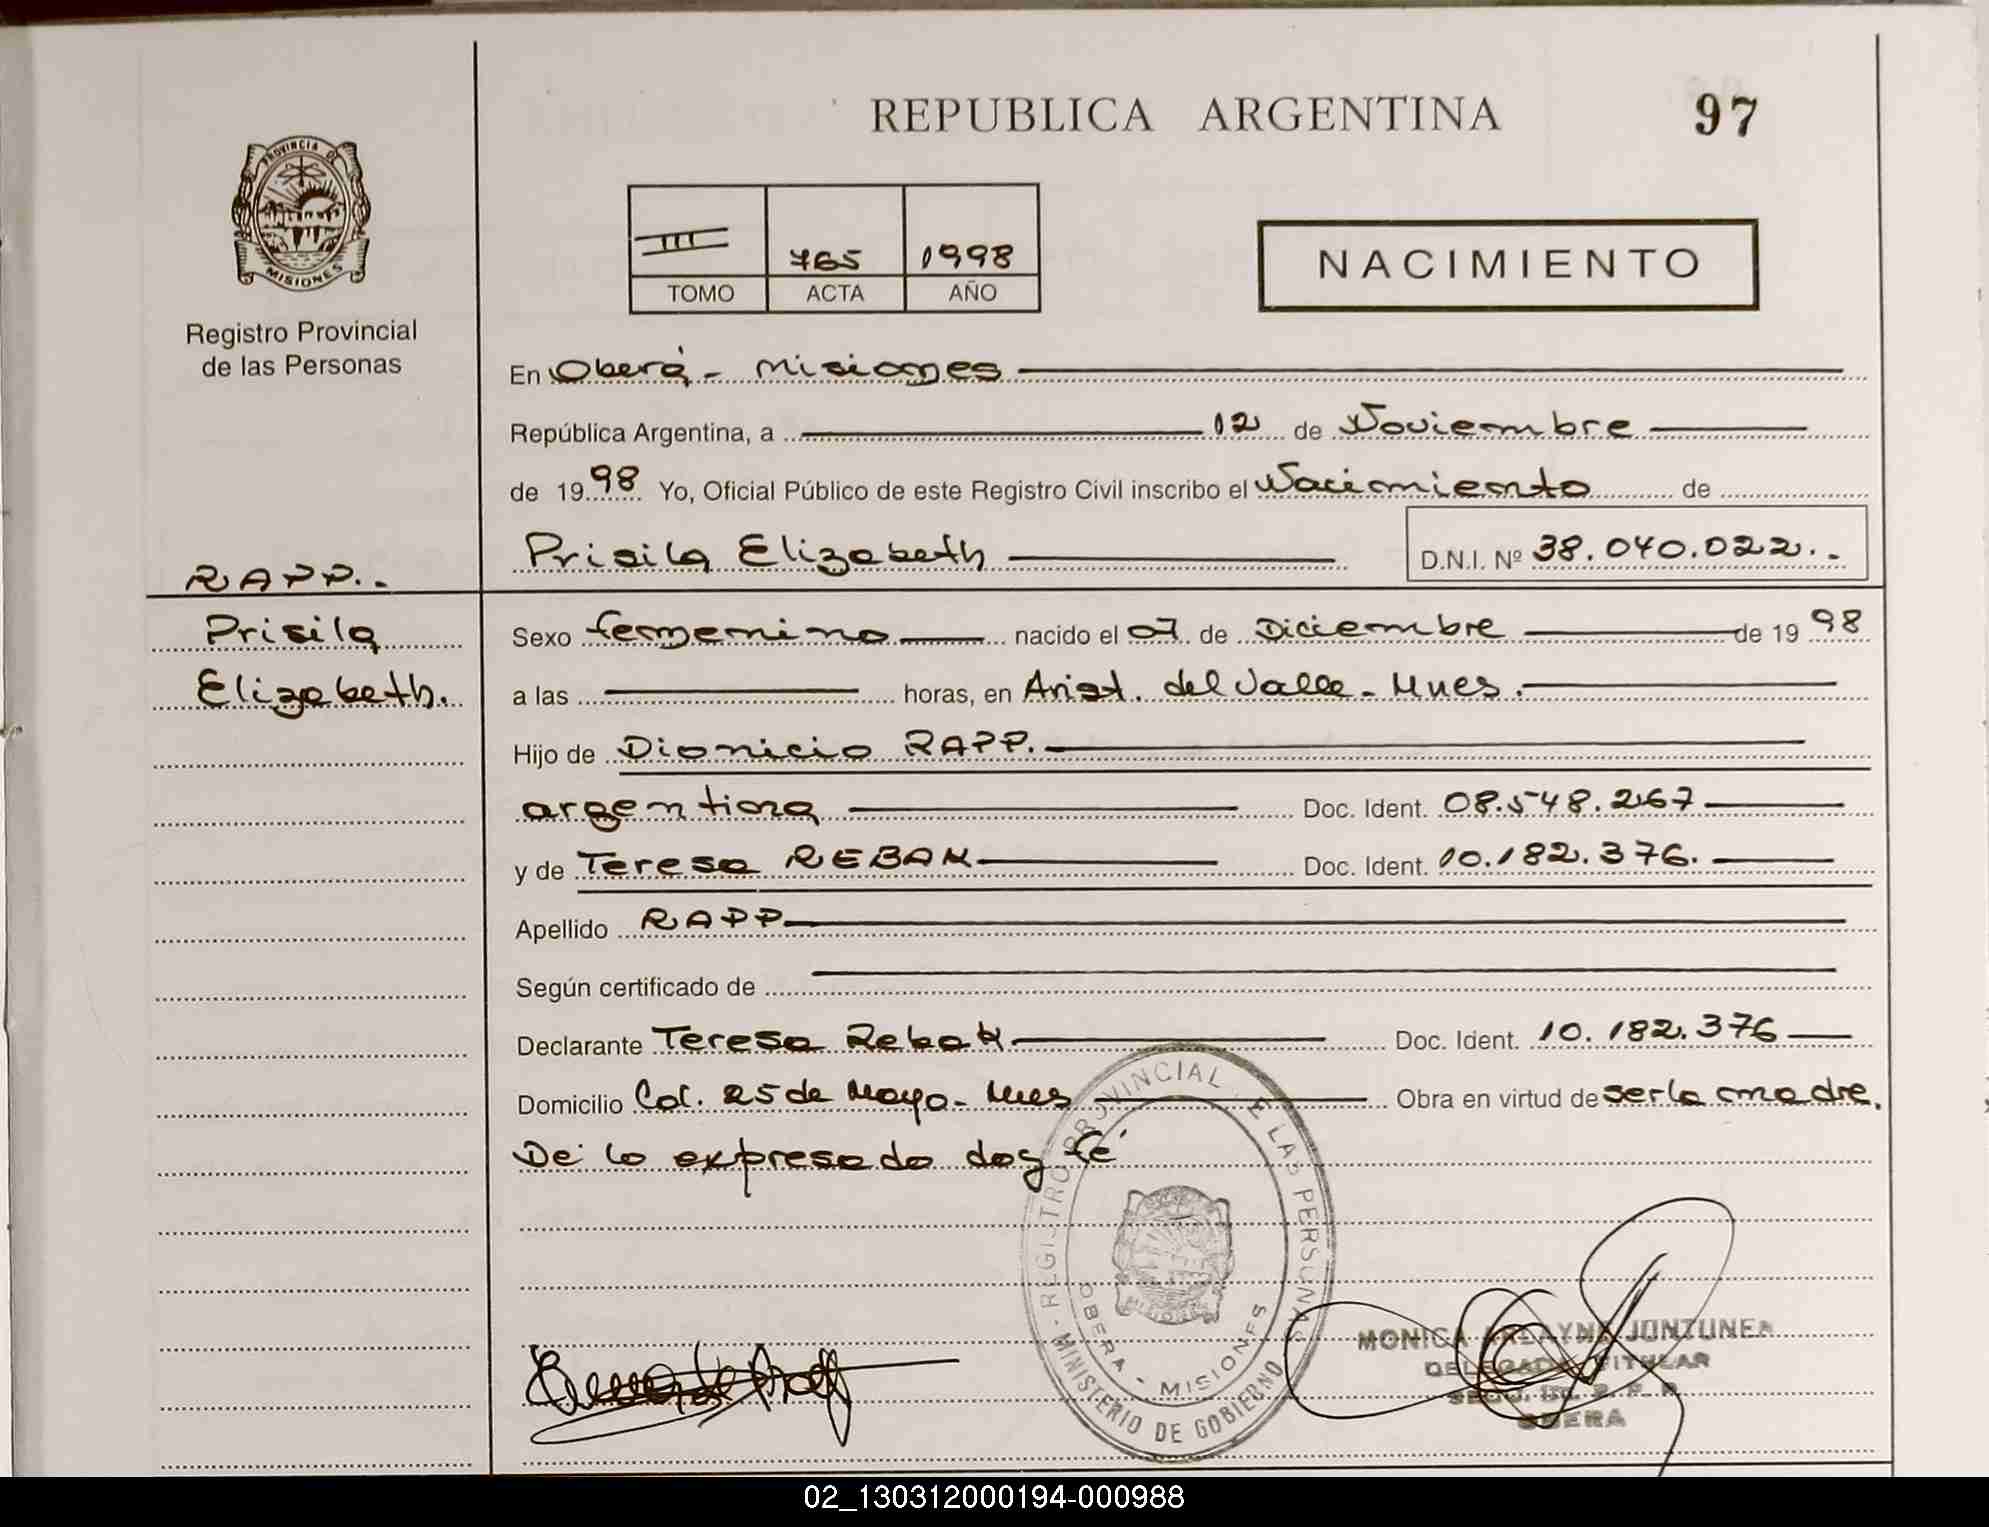 REPUBLICA ARGENTINA
97
PROVINCIA DE
MISIONES
Registro Provincial
de las Personas
III 765 1998
TOMO ACTA AÑO
NACIMIENTO
En Oberá - Misiones
República Argentina, a 12 de Noviembre
de 1998 Yo, Oficial Público de este Registro Civil inscribo el Nacimiento de
Prisila Elizabeth D.N.I. Nº 38.040.022.-
RAPP.-
Prisila
Elizabeth.
Sexo femenino nacido el 07 de Diciembre de 1998
a las horas, en Arist. del Valle - Mnes.
Hijo de Dionicio RAPP.
argentina Doc. Ident. 08.548.267
y de Teresa REBAK Doc. Ident. 10.182.376.
Apellido RAPP
Según certificado de
Declarante Teresa Rebak Doc. Ident. 10.182.376
Domicilio Col. 25 de Mayo - Mnes Obra en virtud de ser la madre.
De lo expresado doy fé
REGISTRO PROVINCIAL DE LAS PERSONAS
OBERA - MISIONES
MINISTERIO DE GOBIERNO
MISIONES
MONICA
DELEGADA TITULAR
OBERA
02_130312000194-000988